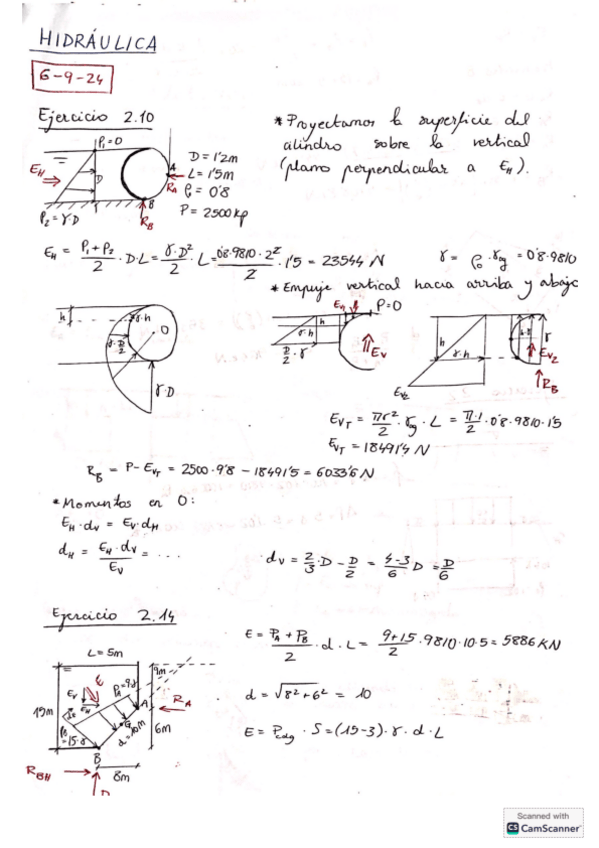 HIDRÁULICA
6-9-24
Ejercicio 2.10
P₁=0
E_H
D
A
R_A
B
R_B
P₂ = γD
D = 1'2m
L = 1'5m
ρ = 0'8
P = 2500 kp
* Proyectamos la superficie del
cilindro sobre la vertical
(plano perpendicular a E_H).
E_H = P₁+P₂/2 · D·L = γ·D²/2 · L = 0'8·9810·2²/2 · 1'5 = 23544 N
γ = ρ · γg = 0'8·9810
* Empuje vertical hacia arriba y abajo
h
γ·h
O
γ·D/2
γ·D
P=0
h
γ·h
D/2 · γ
E_V
h
γ·h
r
E_V2
E_V2
R_B
E_VT = πr²/2 · γg · L = π·1/2 · 0'8·9810·1'5
E_VT = 18491'4 N
R_B = P - E_VT = 2500·9'8 - 18491'5 = 6033'6 N
* Momentos en O:
E_H · d_V = E_V · d_H
d_H = E_H · d_V/E_V = ...
d_V = 2/3 · D - D/2 = 4-3/6 D = D/6
Ejercicio 2.14
L = 5m
9m
E
E_V
E_H
P_A = 9γ
A
R_A
15m
P_B = 15·γ
G
d = 10m
6m
B
R_BH
8m
E = P_A + P_B/2 · d · L = 9+15/2 · 9810·10·5 = 5886 KN
d = √8²+6² = 10
E = P_cdg · S = (15-3) · γ · d · L
Scanned with
CS CamScanner